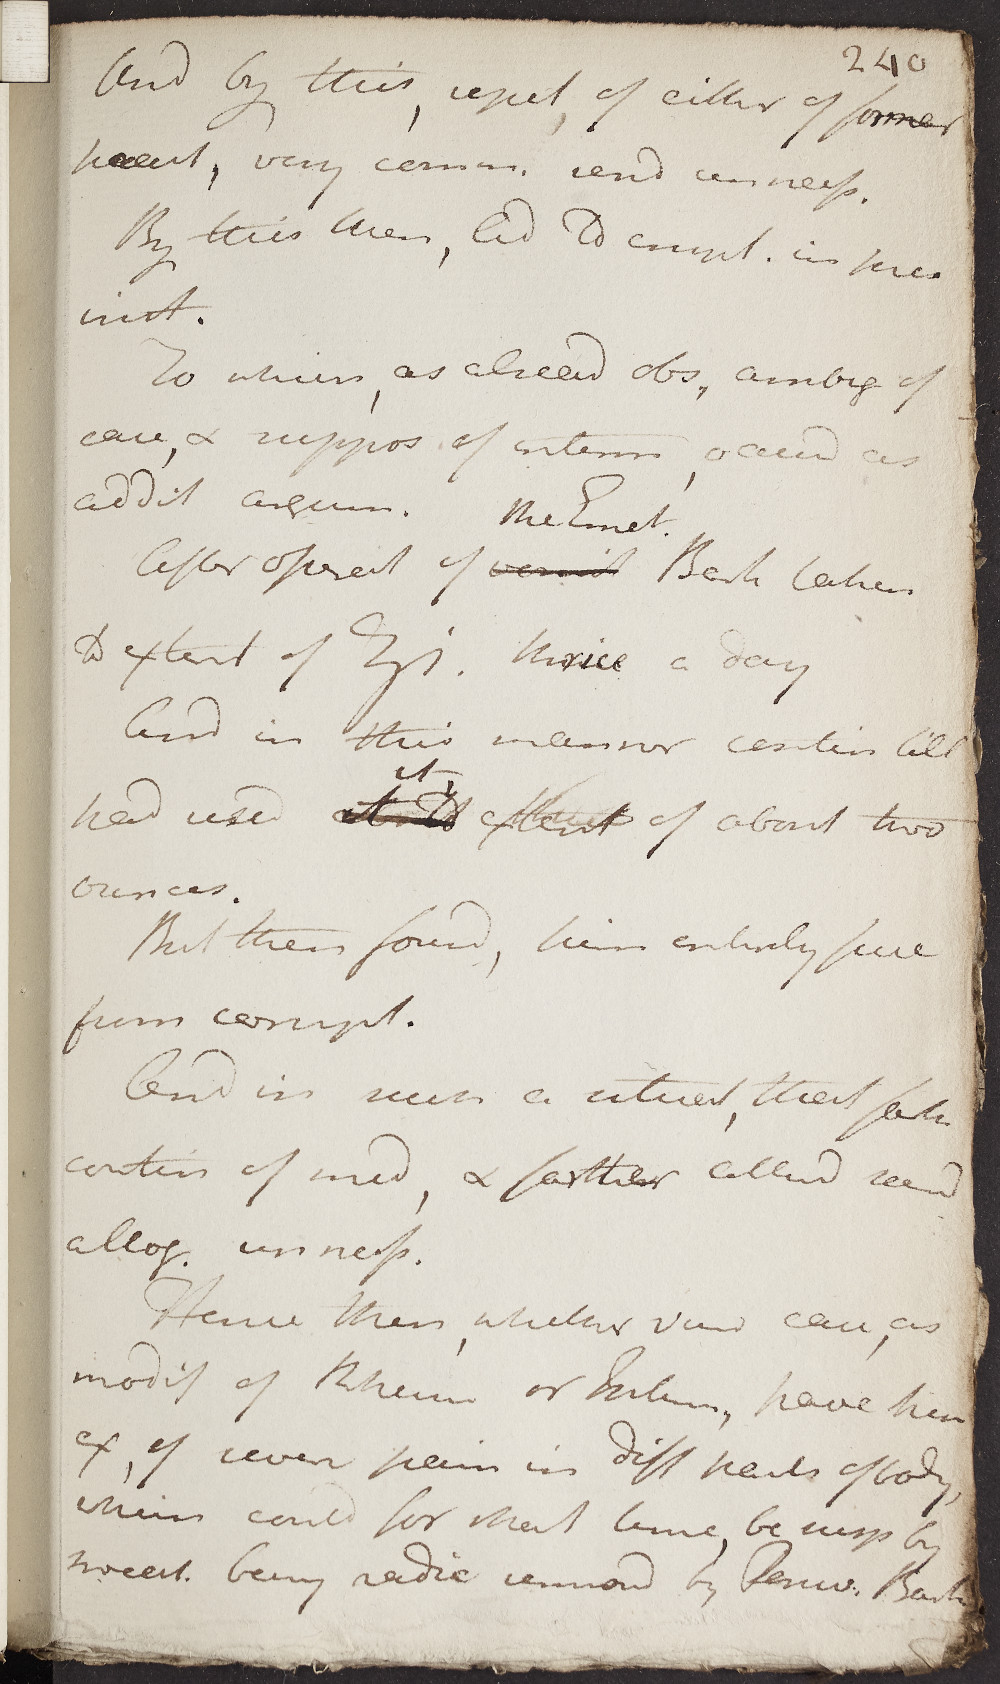 240
And by this, repet, of either of former
treat, very comm. rend unness.
By this then, led to empl. in pres
inst.
To which, as alread obs, ambig of
case, & suppos. of interm, occurd as
addit argum.
the Emet.
After operat of vomit Bark taken
to extent of ʒj. thrice a day
And in this manner contin till
had used it, extent of about two
ounces.
But then found, him entirely free
from compt.
And in such a situat, that farther
contin of med, & farther attend rend
altog. unness.
Hence then, whether view case, as
modif of Rheum or Interm, have here
ex, of severe pain in diff parts of body,
which could for short time, be susp by
sweat. being radic remov'd by Peruv. Bark